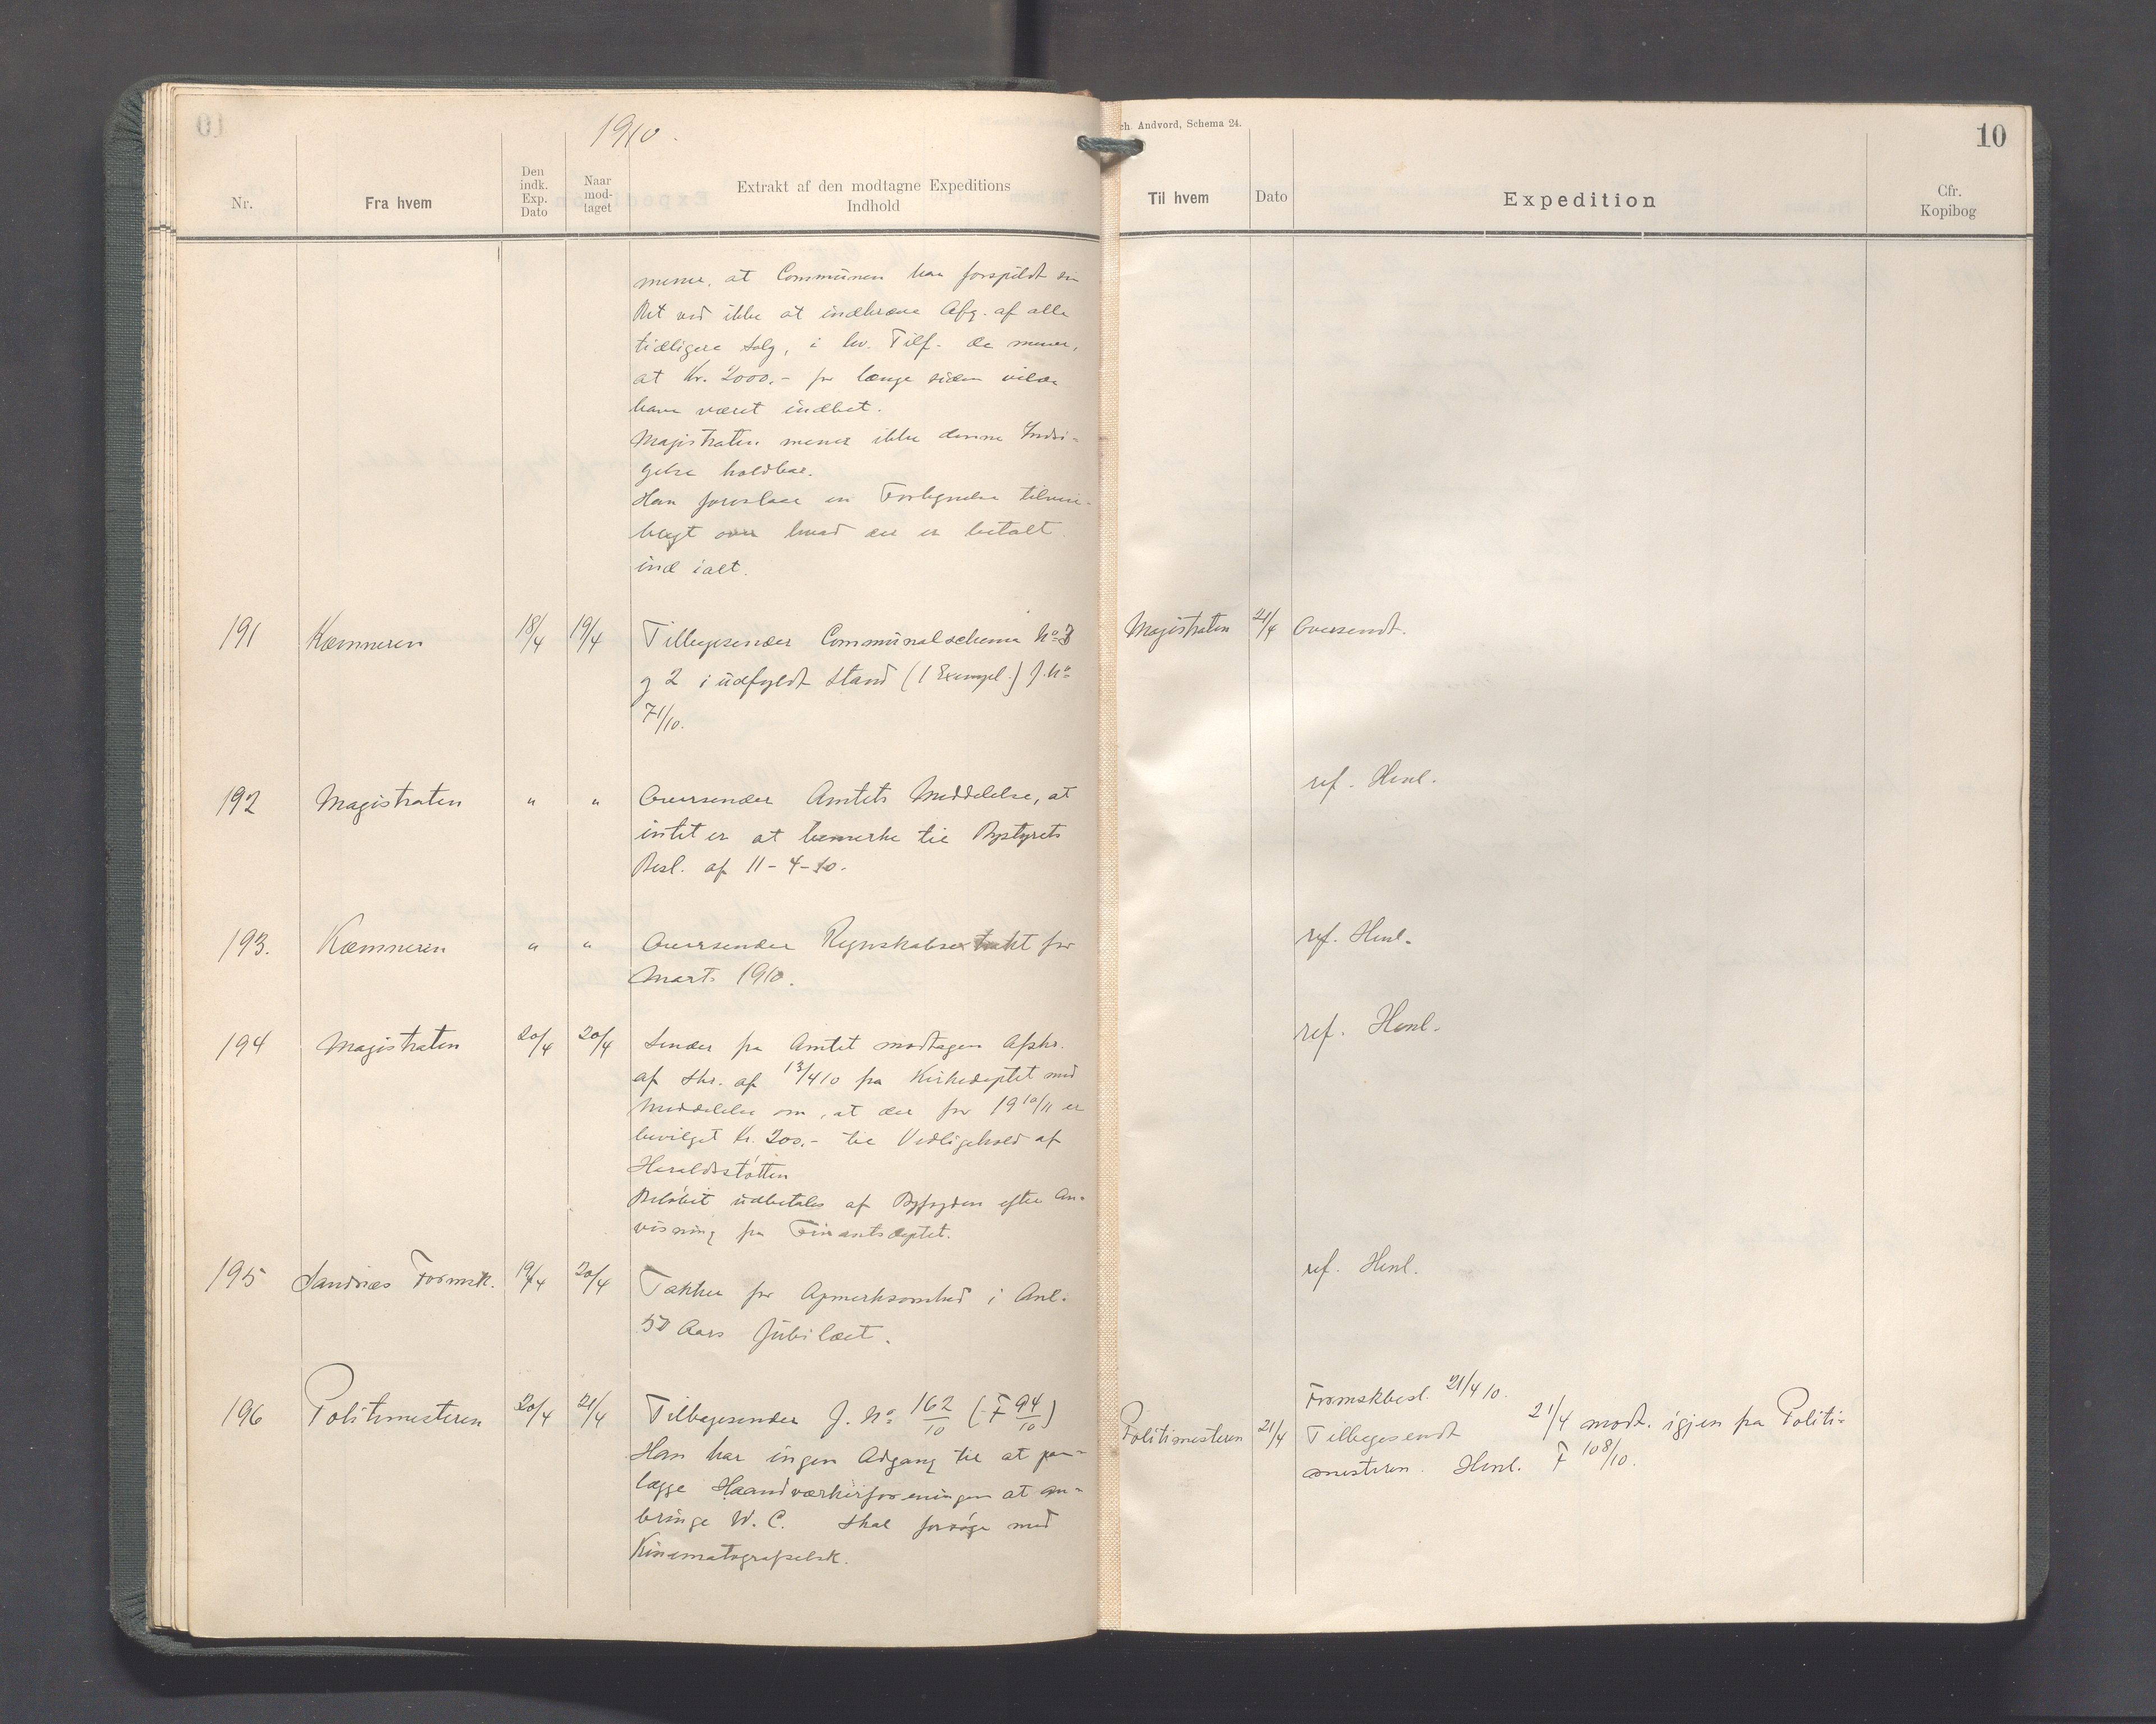 1910.
ch. Andvord, Schema 24.
10
Nr.
Fra hvem
Den indk. Exp. Dato
Naar mod-taget
Extrakt af den modtagne Expeditions Indhold
Til hvem
Dato
Expedition
Cfr. Kopibog
mener, at Communen har forspildt sin
Ret ved ikke at indkræve Afg. af alle
tidligere Salg, i hv. Tilf. de mener,
at Kr. 2000.- for længe siden vilde
have været indbet.
Magistraten mener ikke denne Indsi-
gelse holdbar.
Han foreslaar en Fortegnelse tilveie-
bragt over hvad der er betalt
ind ialt.
191 Kæmneren 18/4 19/4 Tilbagesender Communalschema No 3 Magistraten 21/4 Oversendt.
og 2 i udfyldt Stand (1 Exempl.) J.No
71/10.
192 Magistraten " " Oversender Amtets Meddelelse, at ref. Henl.
intet er at bemerke til Bystyrets
Besl. af 11-4-10.
193. Kæmneren " " Oversender Regnskabsextrakt for ref. Henl.
Marts 1910.
194 Magistraten 20/4 20/4 Sender fra Amtet modtagen Afskr. ref. Henl.
af Skr. af 13/4 10 fra Kirkedeptet med
Meddelelse om, at der for 1910/11 er
bevilget Kr. 200.- til Vedligehold af
Haraldsstøtten
Beløbet udbetales af Byfogden efter An-
visning fra Finantsdeptet.
195 Sandnes Formsk. 19/4 20/4 Takker for Opmerksomhed i Anl. ref. Henl.
50 Aars Jubilæet.
196 Politimesteren 20/4 21/4 Tilbagesender J. No 162/10 (F 94/10) Politimesteren 21/4 Formskbesl. 21/4 10.
Han har ingen Adgang til at paa- Tilbagesendt 21/4 modt. igjen fra Politi-
lægge Haandværkerforeningen at an- mesteren. Henl. F 108/10.
bringe W.C. Skal forsøge med
Kinematografselsk.